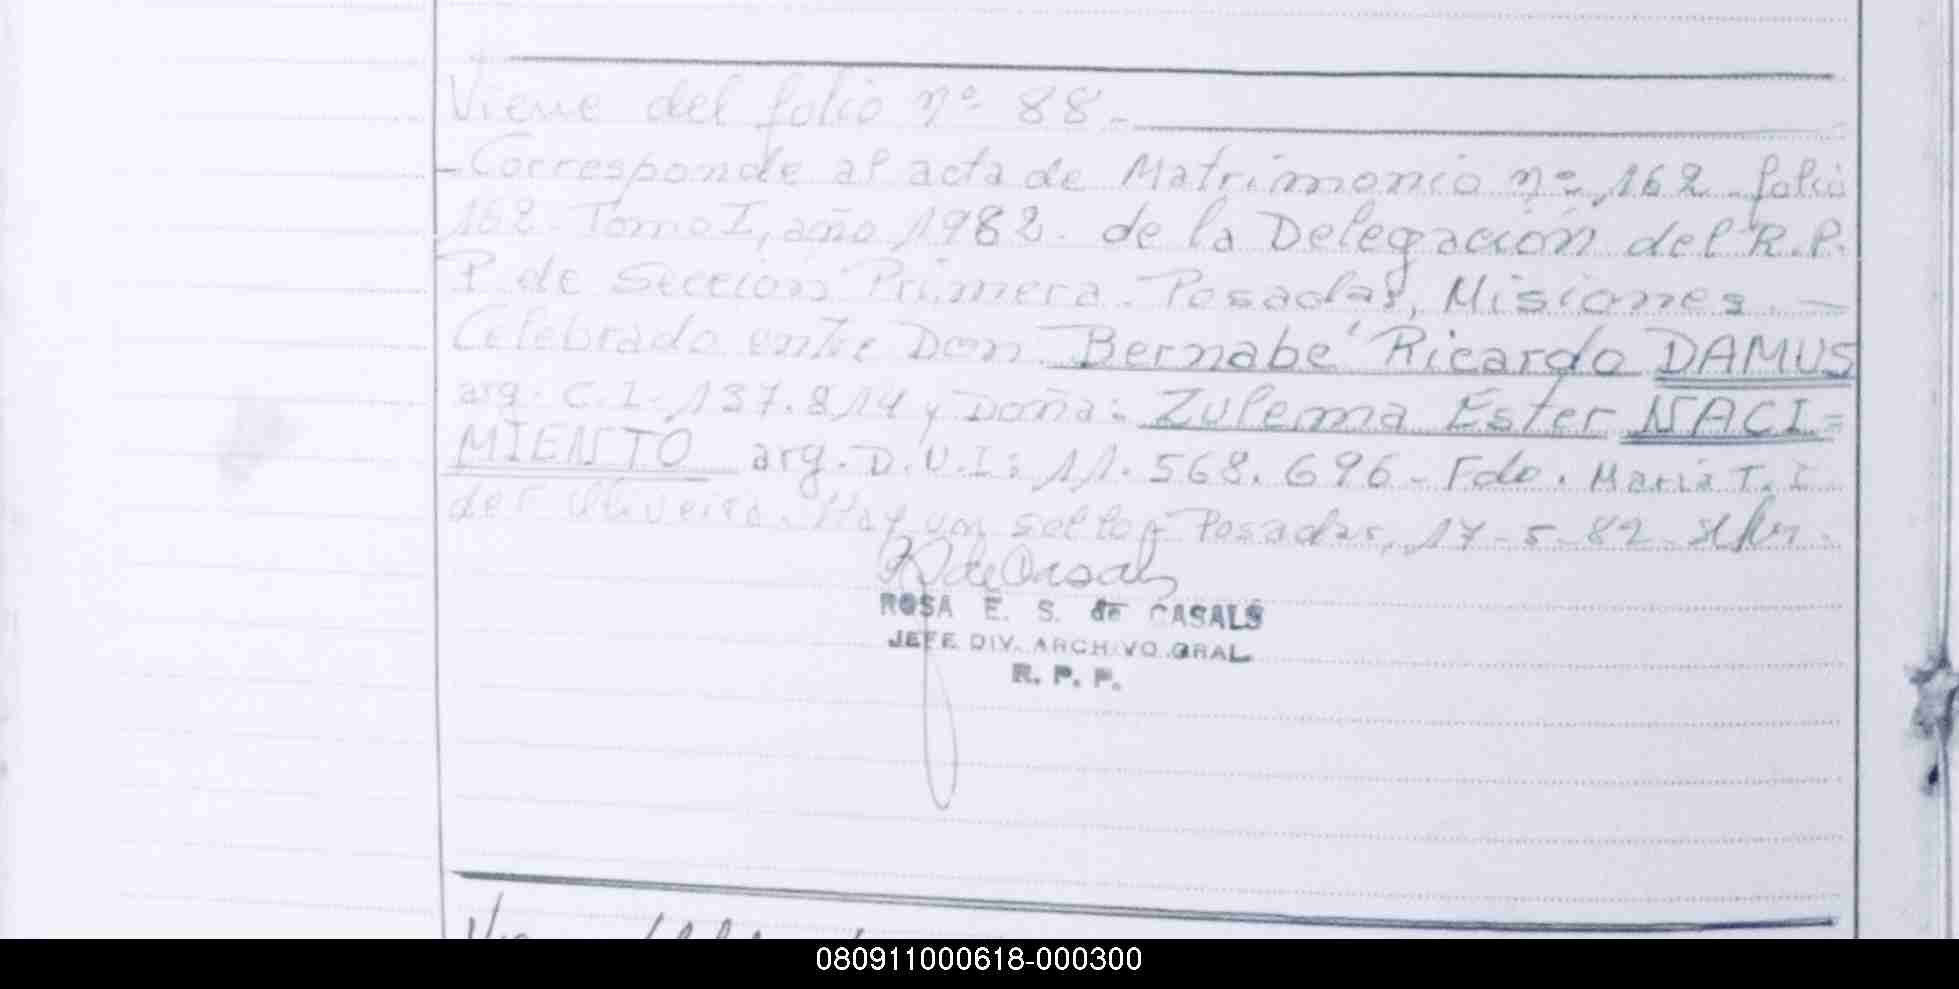 Viene del folio nº 88.-
- Corresponde al acta de Matrimonio nº 162 - folio
162 - Tomo I, año 1982. de la Delegación del R.P.
P. de Sección Primera - Posadas, Misiones. -
Celebrado entre Don Bernabé Ricardo DAMUS
arg. C.I. 137.814 y Doña: Zulema Ester NACI=
MIENTO arg. D.N.I: 11.568.696 - Fdo. María T. I.
de Oliveira. Hay un sello - Posadas, 17-5-82
ROSA E. S. de CASALS
JEFE DIV. ARCHIVO GRAL
R. P. P.
080911000618-000300